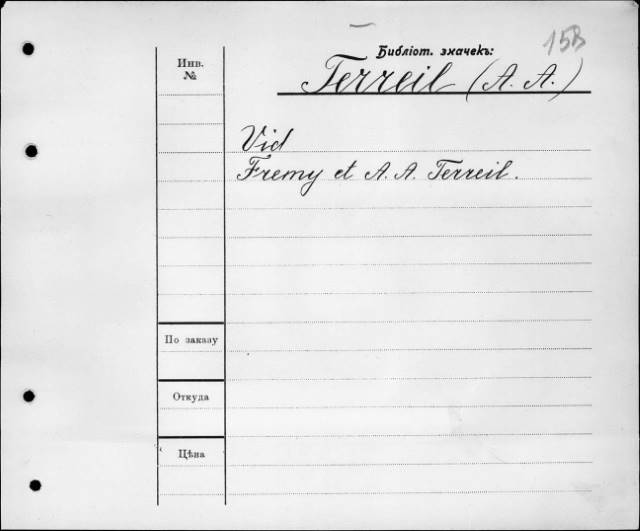 15B
Библіот. значекъ:
Инв.
№
Terreil (A. A.)
Vid
Fremy et A. A. Terreil.
По заказу
Откуда
Цѣна